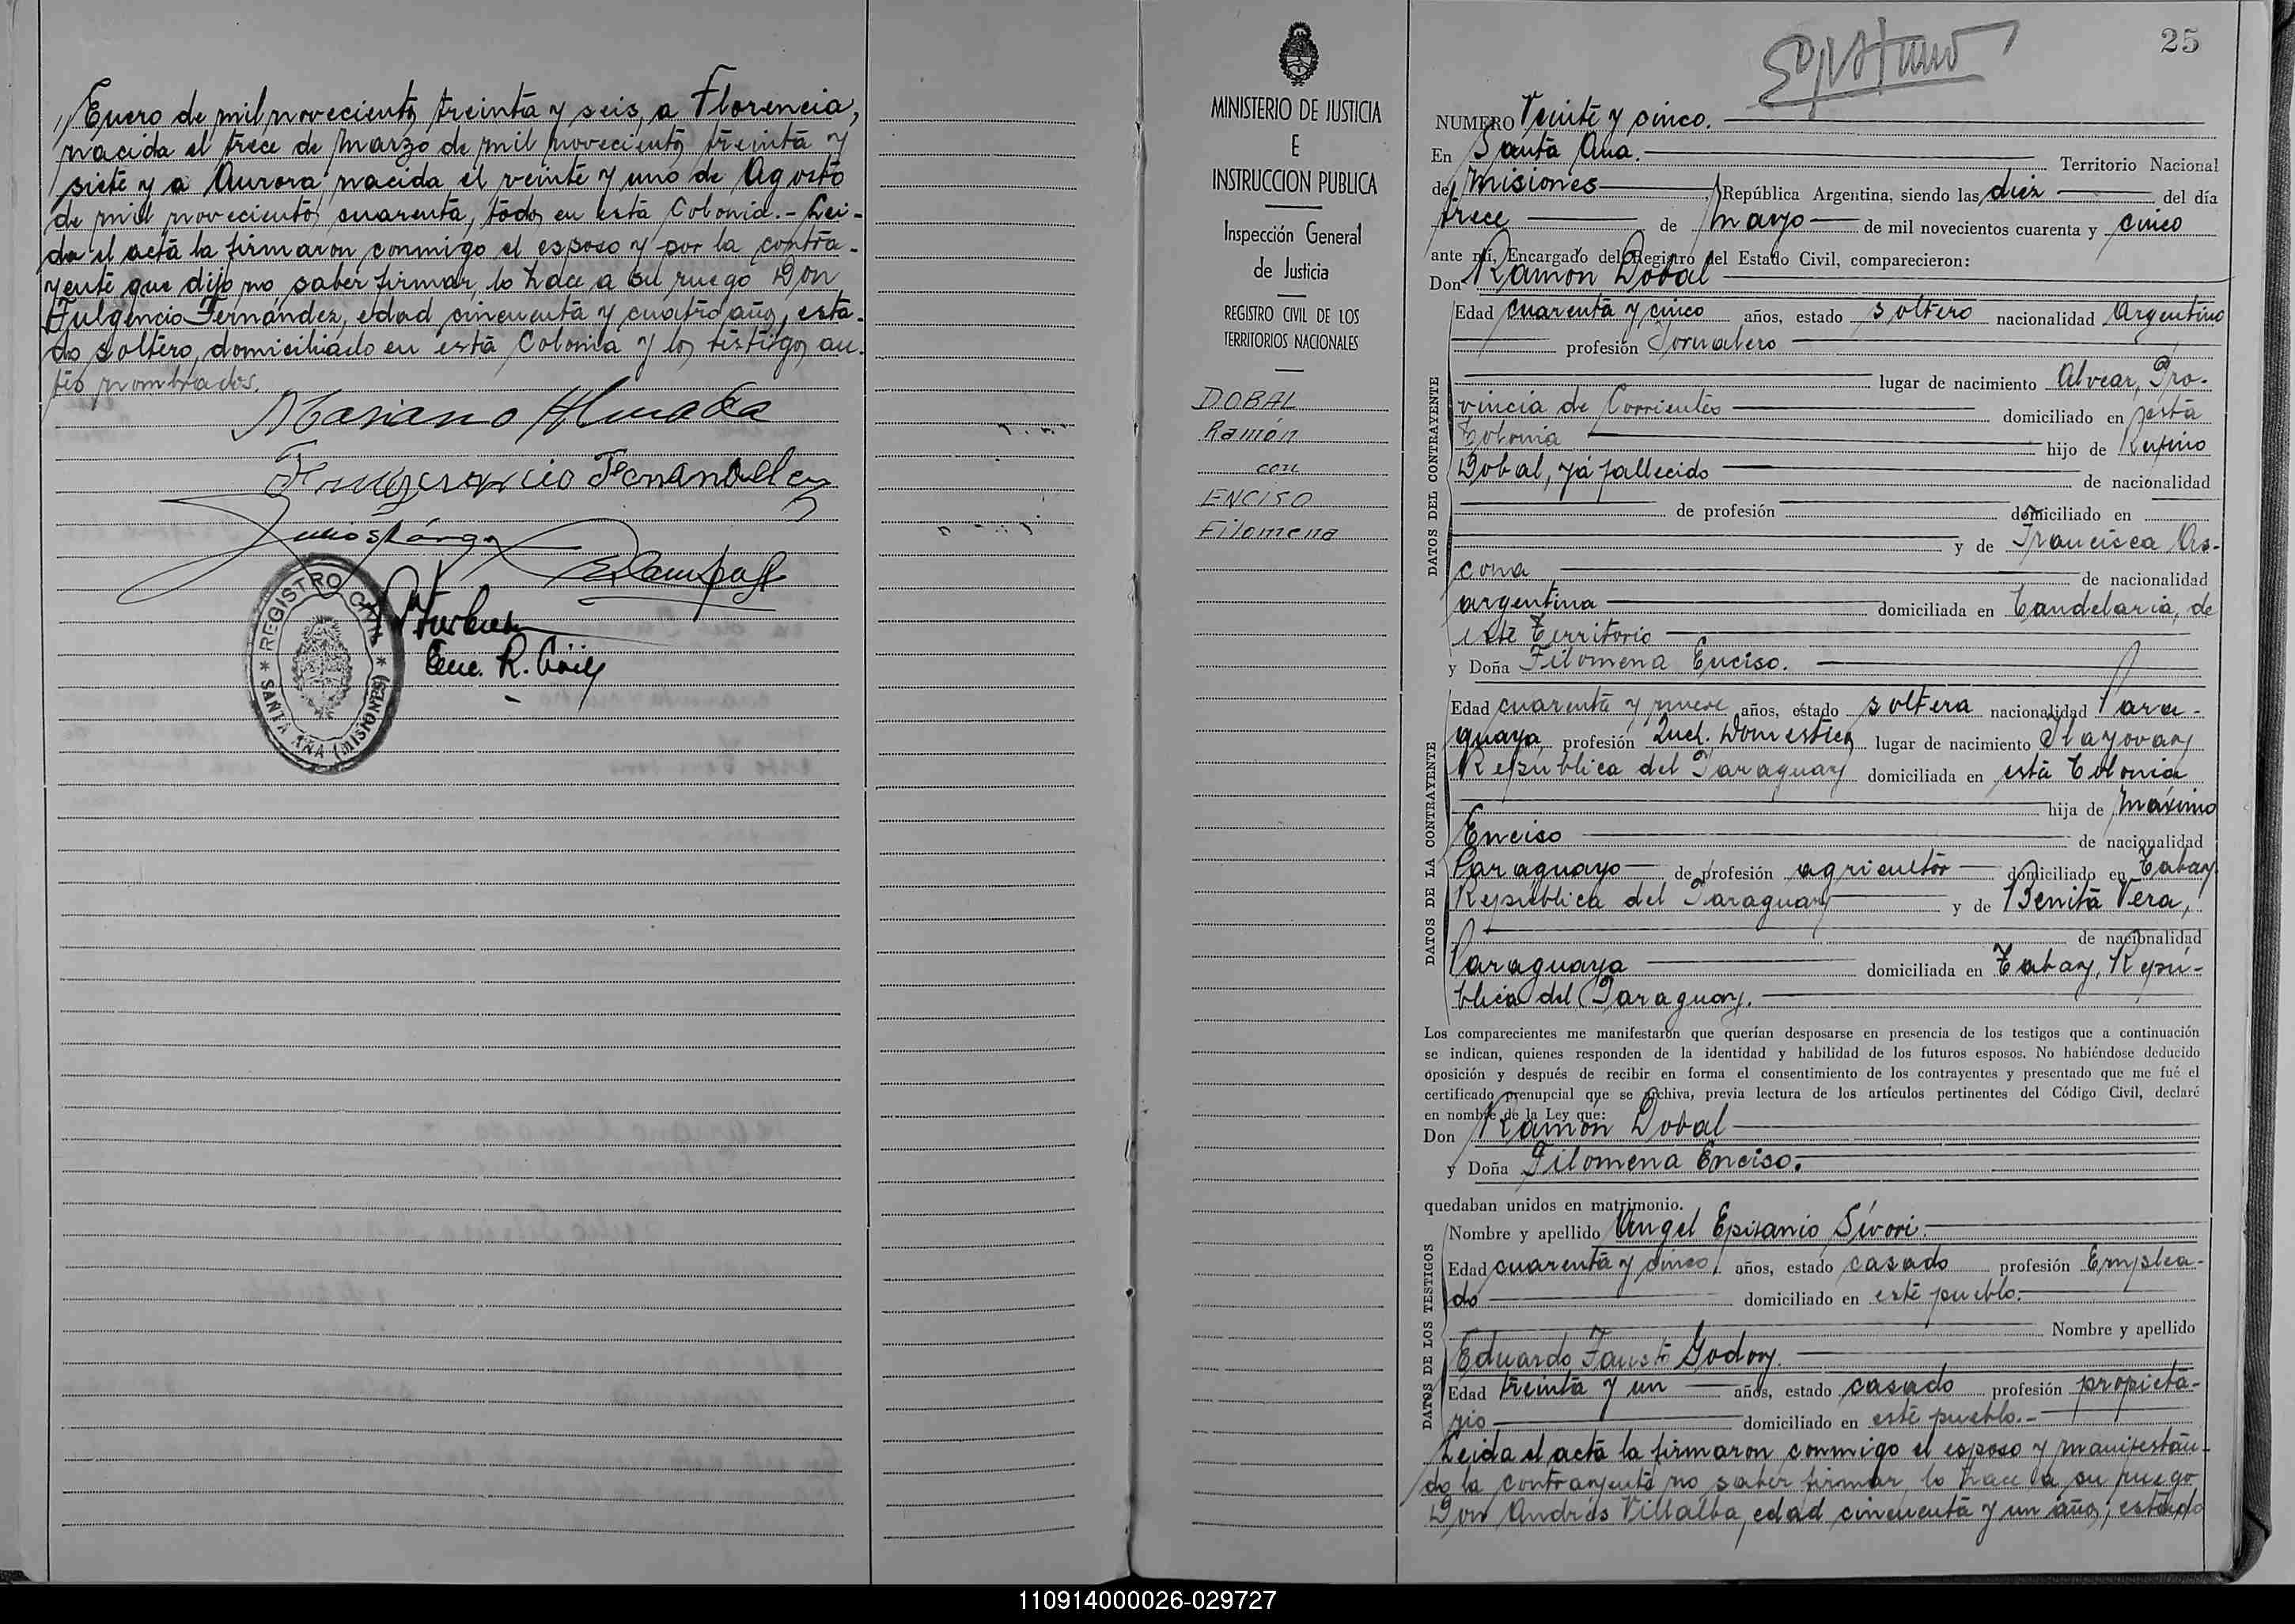 Enero de mil novecientos treinta y seis, a Florencia,
nacida el trece de Marzo de mil novecientos treinta y
siete y a Aurora, nacida el veinte y uno de Agosto
de mil novecientos cuarenta, todos en esta Colonia.- Lei-
da el acta la firmaron conmigo el esposo y por la contra-
yente que dijo no saber firmar, lo hace a su ruego Don
Fulgencio Fernández, edad cincuenta y cuatro años, esta-
do soltero, domiciliado en esta Colonia y los testigos an-
tes nombrados.
Mariano Almada
Fernandez
REGISTRO CIVIL
* SANTA ANA (MISIONES) *
Enc. R. Civil
MINISTERIO DE JUSTICIA
E
INSTRUCCION PUBLICA
Inspección General
de Justicia
REGISTRO CIVIL DE LOS
TERRITORIOS NACIONALES
DOBAL
Ramón
con
ENCISO
Filomena
25
NUMERO Veinte y cinco.
En Santa Ana. Territorio Nacional
de Misiones, República Argentina, siendo las diez del día
trece de mayo de mil novecientos cuarenta y cinco
ante mí, Encargado del Registro del Estado Civil, comparecieron:
Don Ramón Dobal
Edad cuarenta y cinco años, estado soltero nacionalidad Argentino
profesión Jornalero
lugar de nacimiento Alvear, Pro-
vincia de Corrientes domiciliado en esta
Colonia hijo de Rufino
Dobal, ya fallecido de nacionalidad
de profesión domiciliado en
y de Francisca As-
cona de nacionalidad
argentina domiciliada en Candelaria, de
este Territorio
y Doña Filomena Enciso.
DATOS DEL CONTRAYENTE
Edad cuarenta y nueve años, estado soltera nacionalidad Para-
guaya profesión Qued. Doméstica lugar de nacimiento
República del Paraguay domiciliada en esta Colonia
hija de Máximo
Enciso de nacionalidad
Paraguayo de profesión agricultor domiciliado en Tabay
República del Paraguay y de Benita Vera,
de nacionalidad
Paraguaya domiciliada en Tabay, Repú-
blica del Paraguay.
DATOS DE LA CONTRAYENTE
Los comparecientes me manifestaron que querían desposarse en presencia de los testigos que a continuación
se indican, quienes responden de la identidad y habilidad de los futuros esposos. No habiéndose deducido
oposición y después de recibir en forma el consentimiento de los contrayentes y presentado que me fué el
certificado prenupcial que se archiva, previa lectura de los artículos pertinentes del Código Civil, declaré
en nombre de la Ley que:
Don Ramón Dobal
y Doña Filomena Enciso.
quedaban unidos en matrimonio.
Nombre y apellido Angel Epifanio Sívori.
Edad cuarenta y cinco, años, estado casado profesión Emplea-
do domiciliado en este pueblo.
Nombre y apellido
Eduardo Fausto Godoy.
Edad treinta y un años, estado casado profesión propieta-
rio domiciliado en este pueblo.-
DATOS DE LOS TESTIGOS
Leida el acta la firmaron conmigo el esposo y manifestan-
do la contrayente no saber firmar, lo hace a su ruego
Don Andrés Villalba, edad cincuenta y un años, estado
110914000026-029727